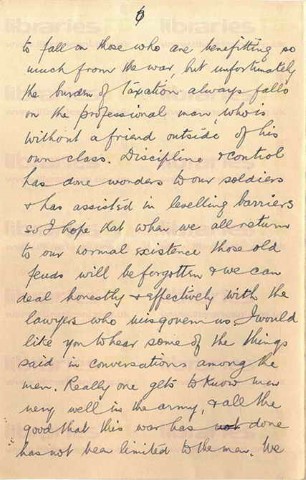 6
to fall on those who are benefitting so
much from the war, but unfortunately
the burden of taxation always falls
on the professional man who is
without a friend outside of his
own class. Discipline & control
has done wonders to our soldiers
& has assisted in levelling barriers
so I hope that when we all return
to our normal existence those old
feuds will be forgotten & we can
deal honestly & effectively with the
lawyers who misgovern us. I would
like you to hear some of the things
said in conversations among the
men. Really one gets to know men
very well in the army, & all the
good that this war has not done
has not been limited to the men. We